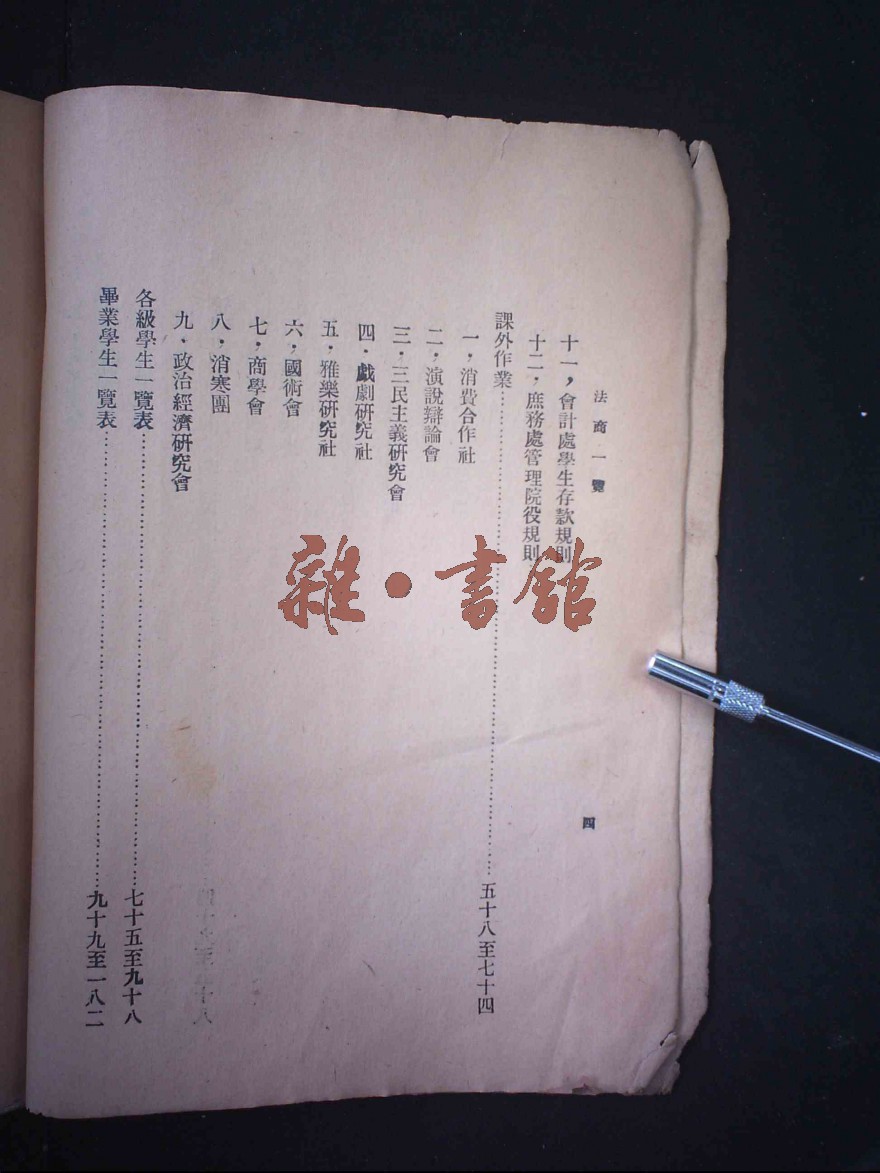 法商一覽
四
十一，會計處學生存款規則
十二，庶務處管理院役規則
課外作業……五十八至七十四
一，消費合作社
二，演說辯論會
三．三民主義研究會
四．戲劇研究社
五．雅樂研究社
六，國術會
七．商學會
八，消寒團
九、政治經濟研究會
各級學生一覽表……七十五至九十八
畢業學生一覽表……九十九至一八二
雜·書館